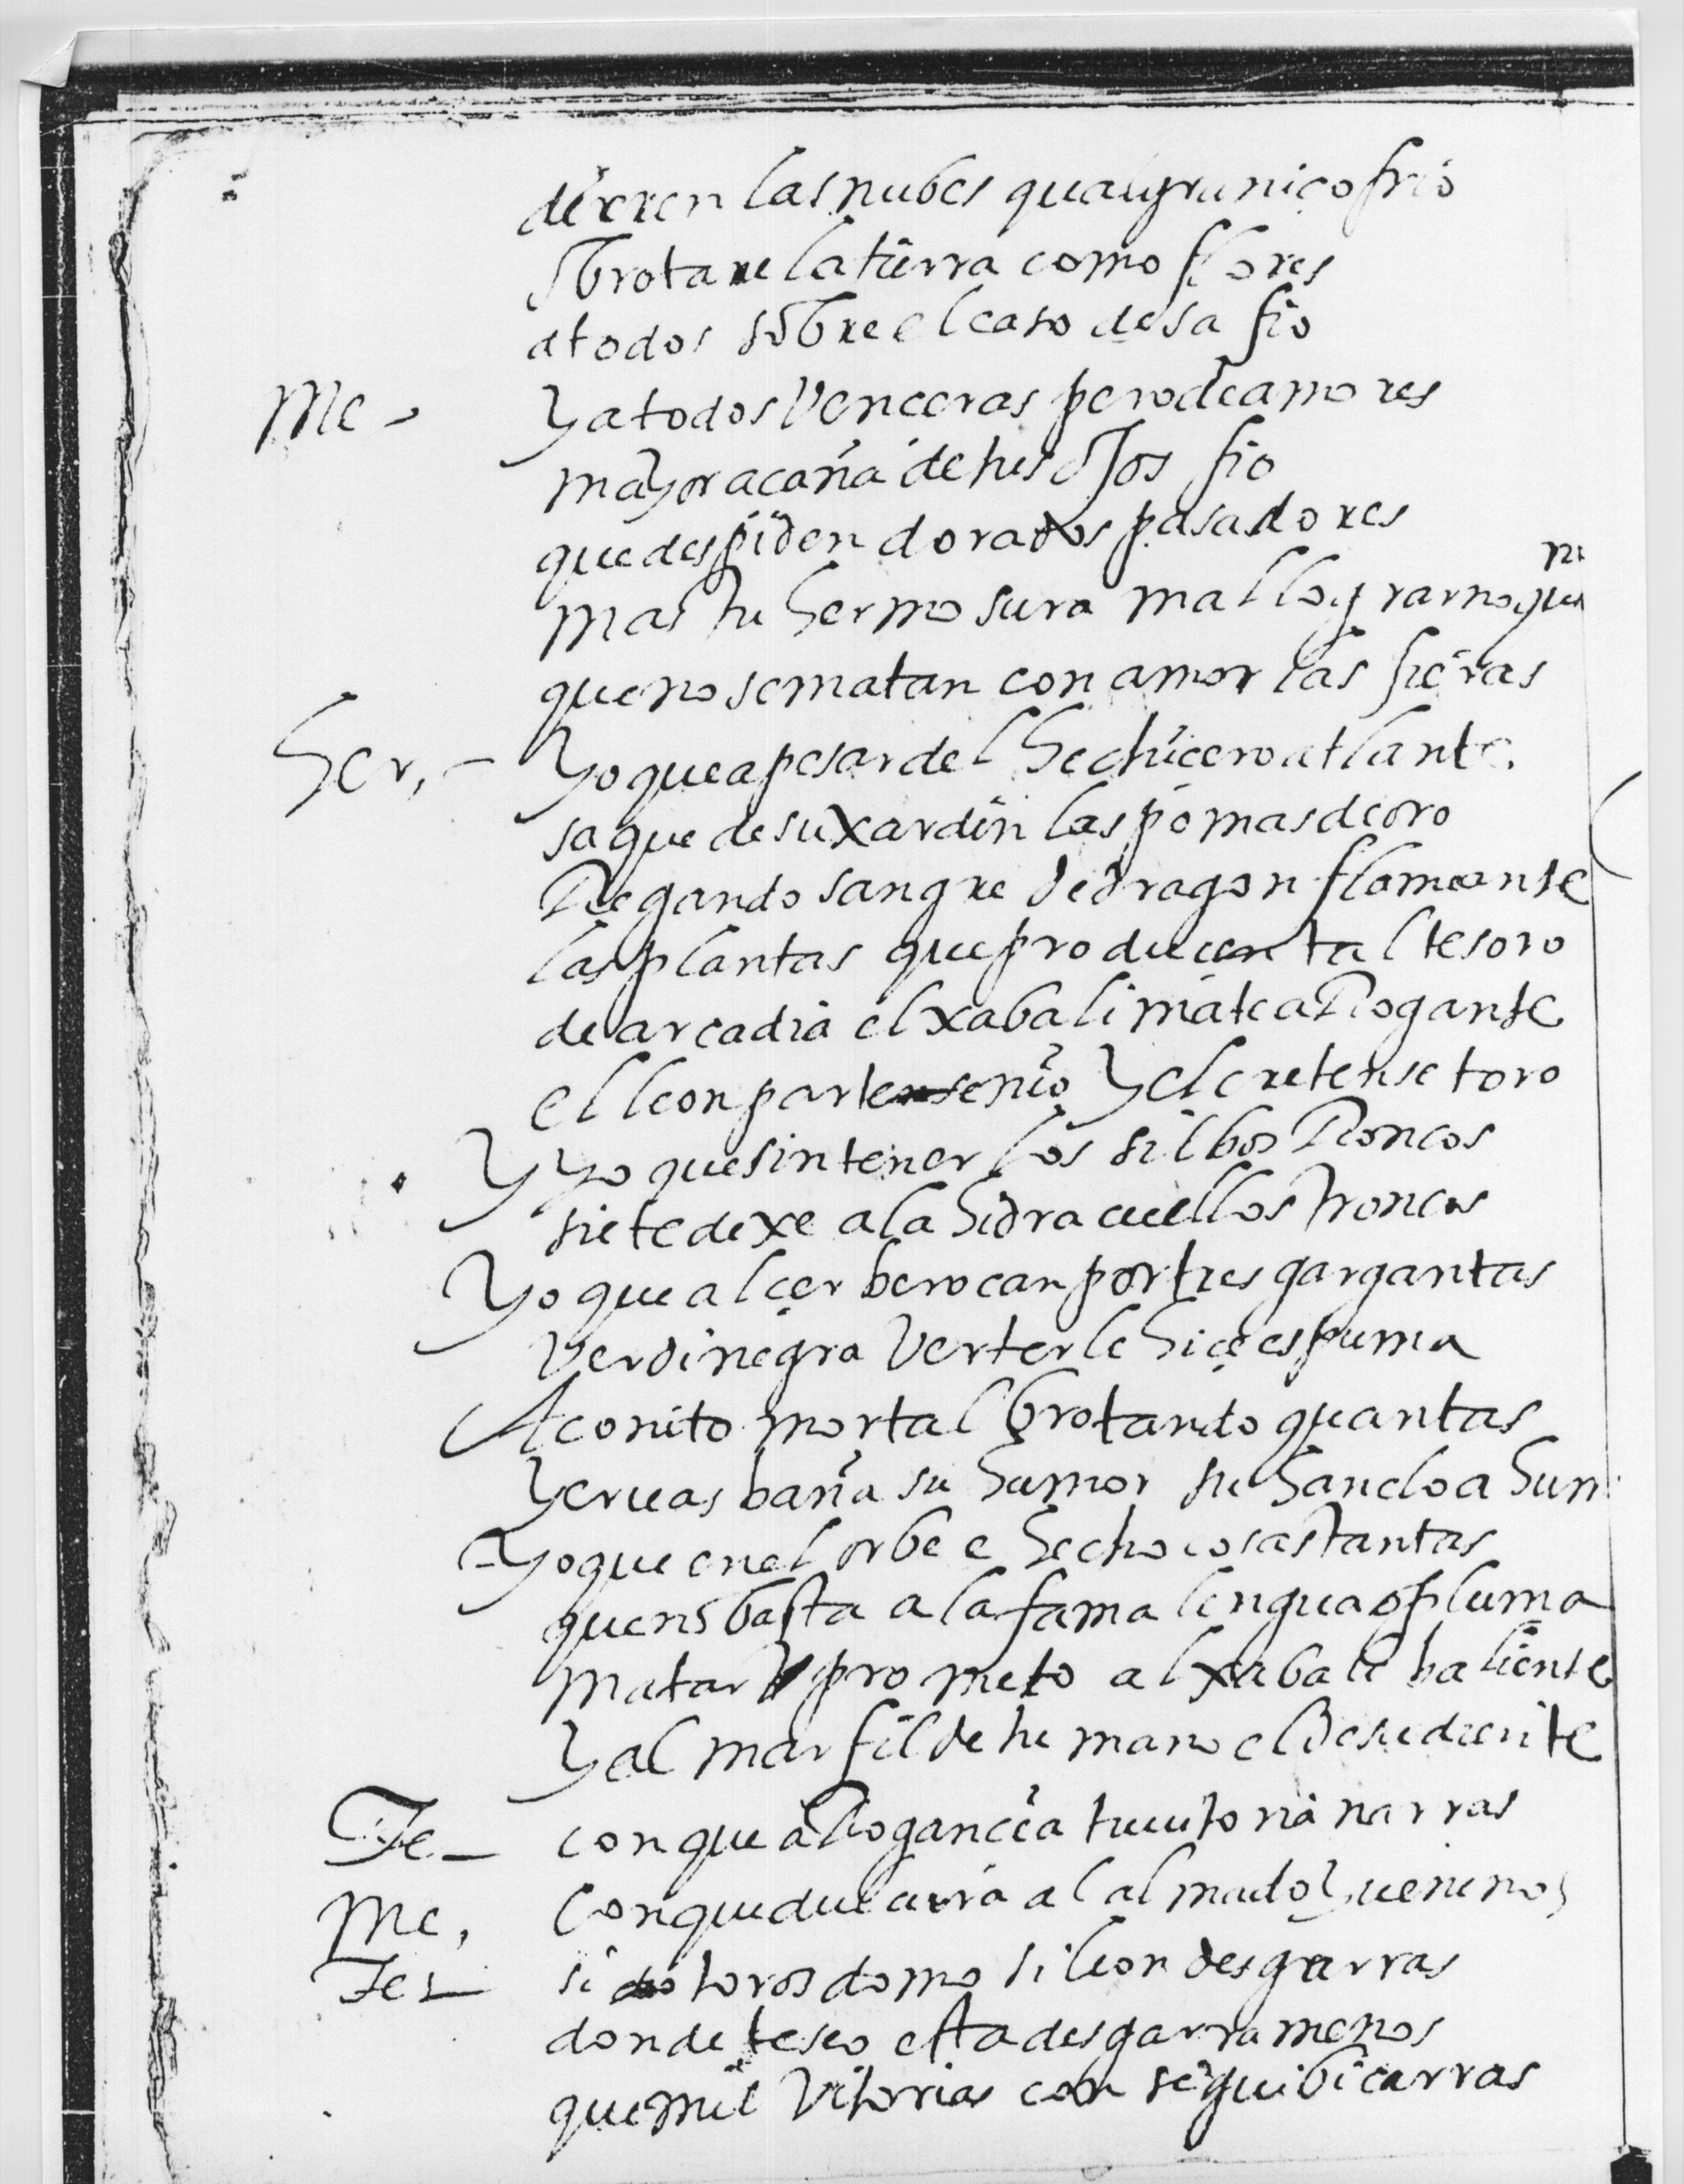 dexen las nubes qual graniço frio
o brotare la tierra como flores
a todos sobre el caso desafio
Me - Y a todos venceras pero de amores
mayor acaña de tus ojos fio
que despiden dorados pasadores
mas tu hermosura mallograr no
que no se matan con amor las fieras
Her, - Yo que a pesar del hechicero atlante
saque de su xardin las pomas de oro
Regando sangre de dragon flameante
las plantas que producen tal tesoro
de arcadia el xabali mate aRogante
el leon parte nemeo y el cretense toro
Y yo que sin tener los silbos Roncos
siete dexe a la hidra cuellos troncos
Yo que al çerbero can por tres gargantas
verdinegra verter le hiçe espuma
Aconito mortal brotando quantas
yeruas baña su humor su hanelo ahun
- Yo que en el orbe e hecho cosas tantas
que no basta a la fama lengua o pluma
matar prometo al xabali baliente
Y al marfil de tu mano el de su diente
Te - con que aRogancia tu vitoria narras
Me, con que dulcura al almado y venenos
Tes - si toros domo si leon desgarras
donde teseo esta desgarra menos
que mil vitorias conseguí biçarras